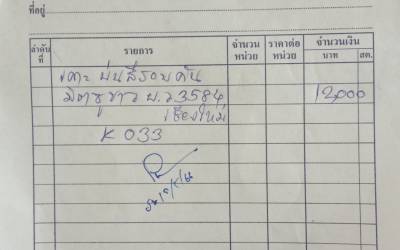 ที่อยู่
ลำดับที่ รายการ จำนวนหน่วย ราคาต่อหน่วย จำนวนเงิน บาท สต.
เคาะ พ่นสีรอบคัน
มิตซูขาว 3584 12,000
เชียงใหม่
K 033